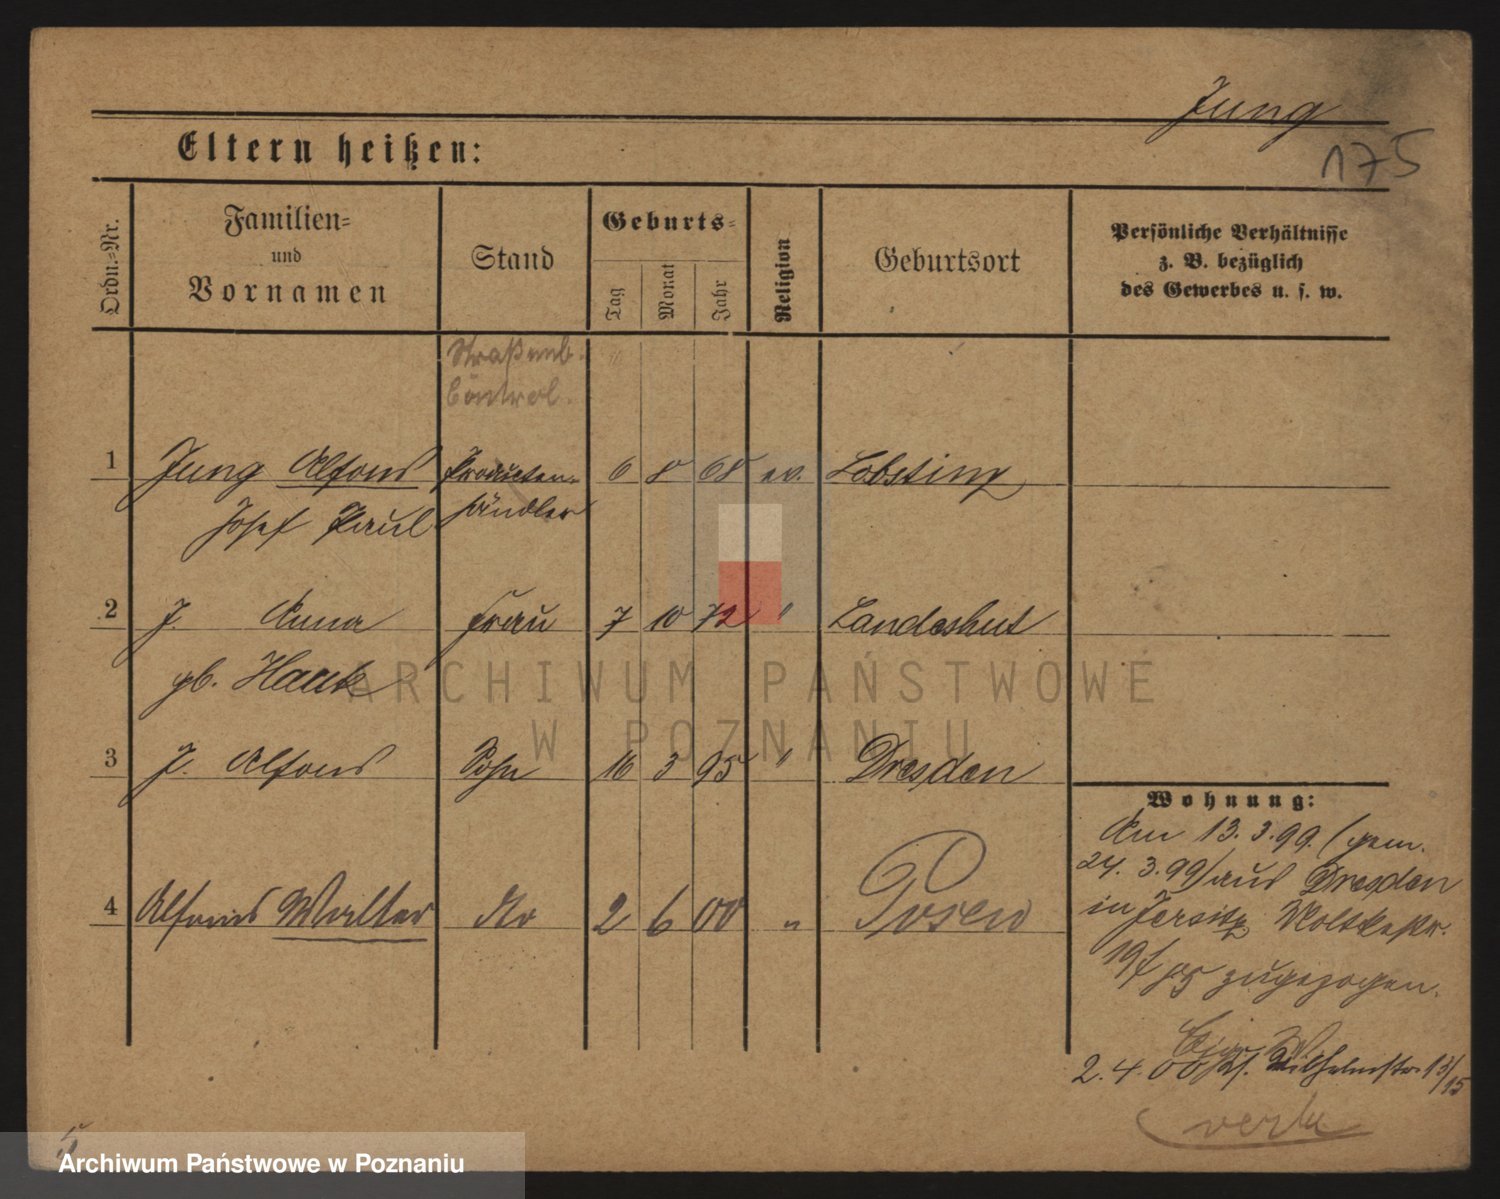 Jung
175
Eltern heißen:
Ordn.-Nr.
Familien-
und
Vornamen
Stand
Geburts-
Tag
Monat
Jahr
Religion
Geburtsort
Persönliche Verhältnisse
z. B. bezüglich
des Gewerbes u. s. w.
Straßenb.
Control.
1 Jung Alfons Producten- 6 8 68 ev. Lobsting
Josef Paul händler
2 J. Anna Frau 7 10 72 " Landeshut
gb. Hauke
3 J. Alfons Sohn 16 3 95 " Dresden
4 Alfons Walter do 2 6 00 " Posen
Wohnung:
Am 13. 3. 99. (gem.
24. 3. 99) aus Dresden
in Jersitz Moltkestr.
19 zugezogen.
2. 4. 00 Wilhelmstr. 13/15
verte
5
ARCHIWUM PAŃSTWOWE
W POZNANIU
Archiwum Państwowe w Poznaniu